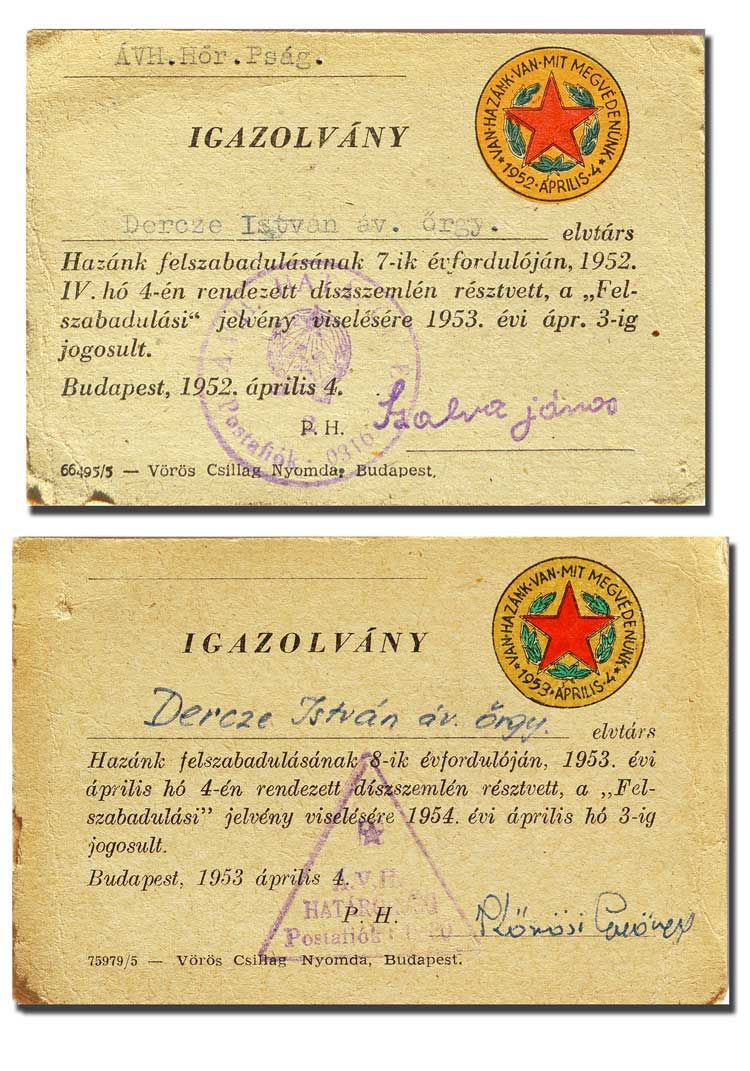 ÁVH.Hőr.Pság.
VAN·HAZÁNK·VAN·MIT MEGVÉDENÜNK
1952·ÁPRILIS·4
IGAZOLVÁNY
Dercze István áv. őrgy. elvtárs
Hazánk felszabadulásának 7-ik évfordulóján, 1952.
IV. hó 4-én rendezett díszszemlén résztvett, a „Fel-
szabadulási“ jelvény viselésére 1953. évi ápr. 3-ig
jogosult.
Budapest, 1952. április 4.
Szalva jános
P. H.
Postafiók 0316
66495/5 — Vörös Csillag Nyomda, Budapest.
VAN·HAZÁNK·VAN·MIT MEGVÉDENÜNK
1953·ÁPRILIS·4
IGAZOLVÁNY
Dercze István áv. őrgy. elvtárs
Hazánk felszabadulásának 8-ik évfordulóján, 1953. évi
április hó 4-én rendezett díszszemlén résztvett, a „Fel-
szabadulási” jelvény viselésére 1954. évi április hó 3-ig
jogosult.
Budapest, 1953 április 4.
Á.V.H.
HATÁRŐRSÉG
P. H.
Postafiók
Kőrösi György
75979/5 — Vörös Csillag Nyomda, Budapest.